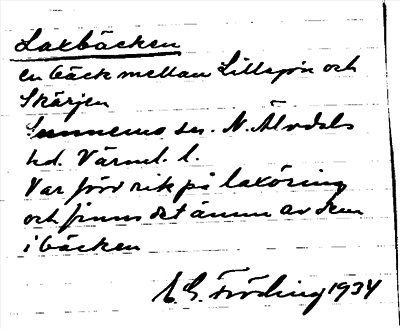 Laxbäcken
en bäck mellan Lillsjön och
Skärjen
Sunnemo sn. N. Älvdals
hd. Värml. l.
Var förr rik på laxöring
och finns det ännu av dem
i bäcken
E. G. Fröding 1934